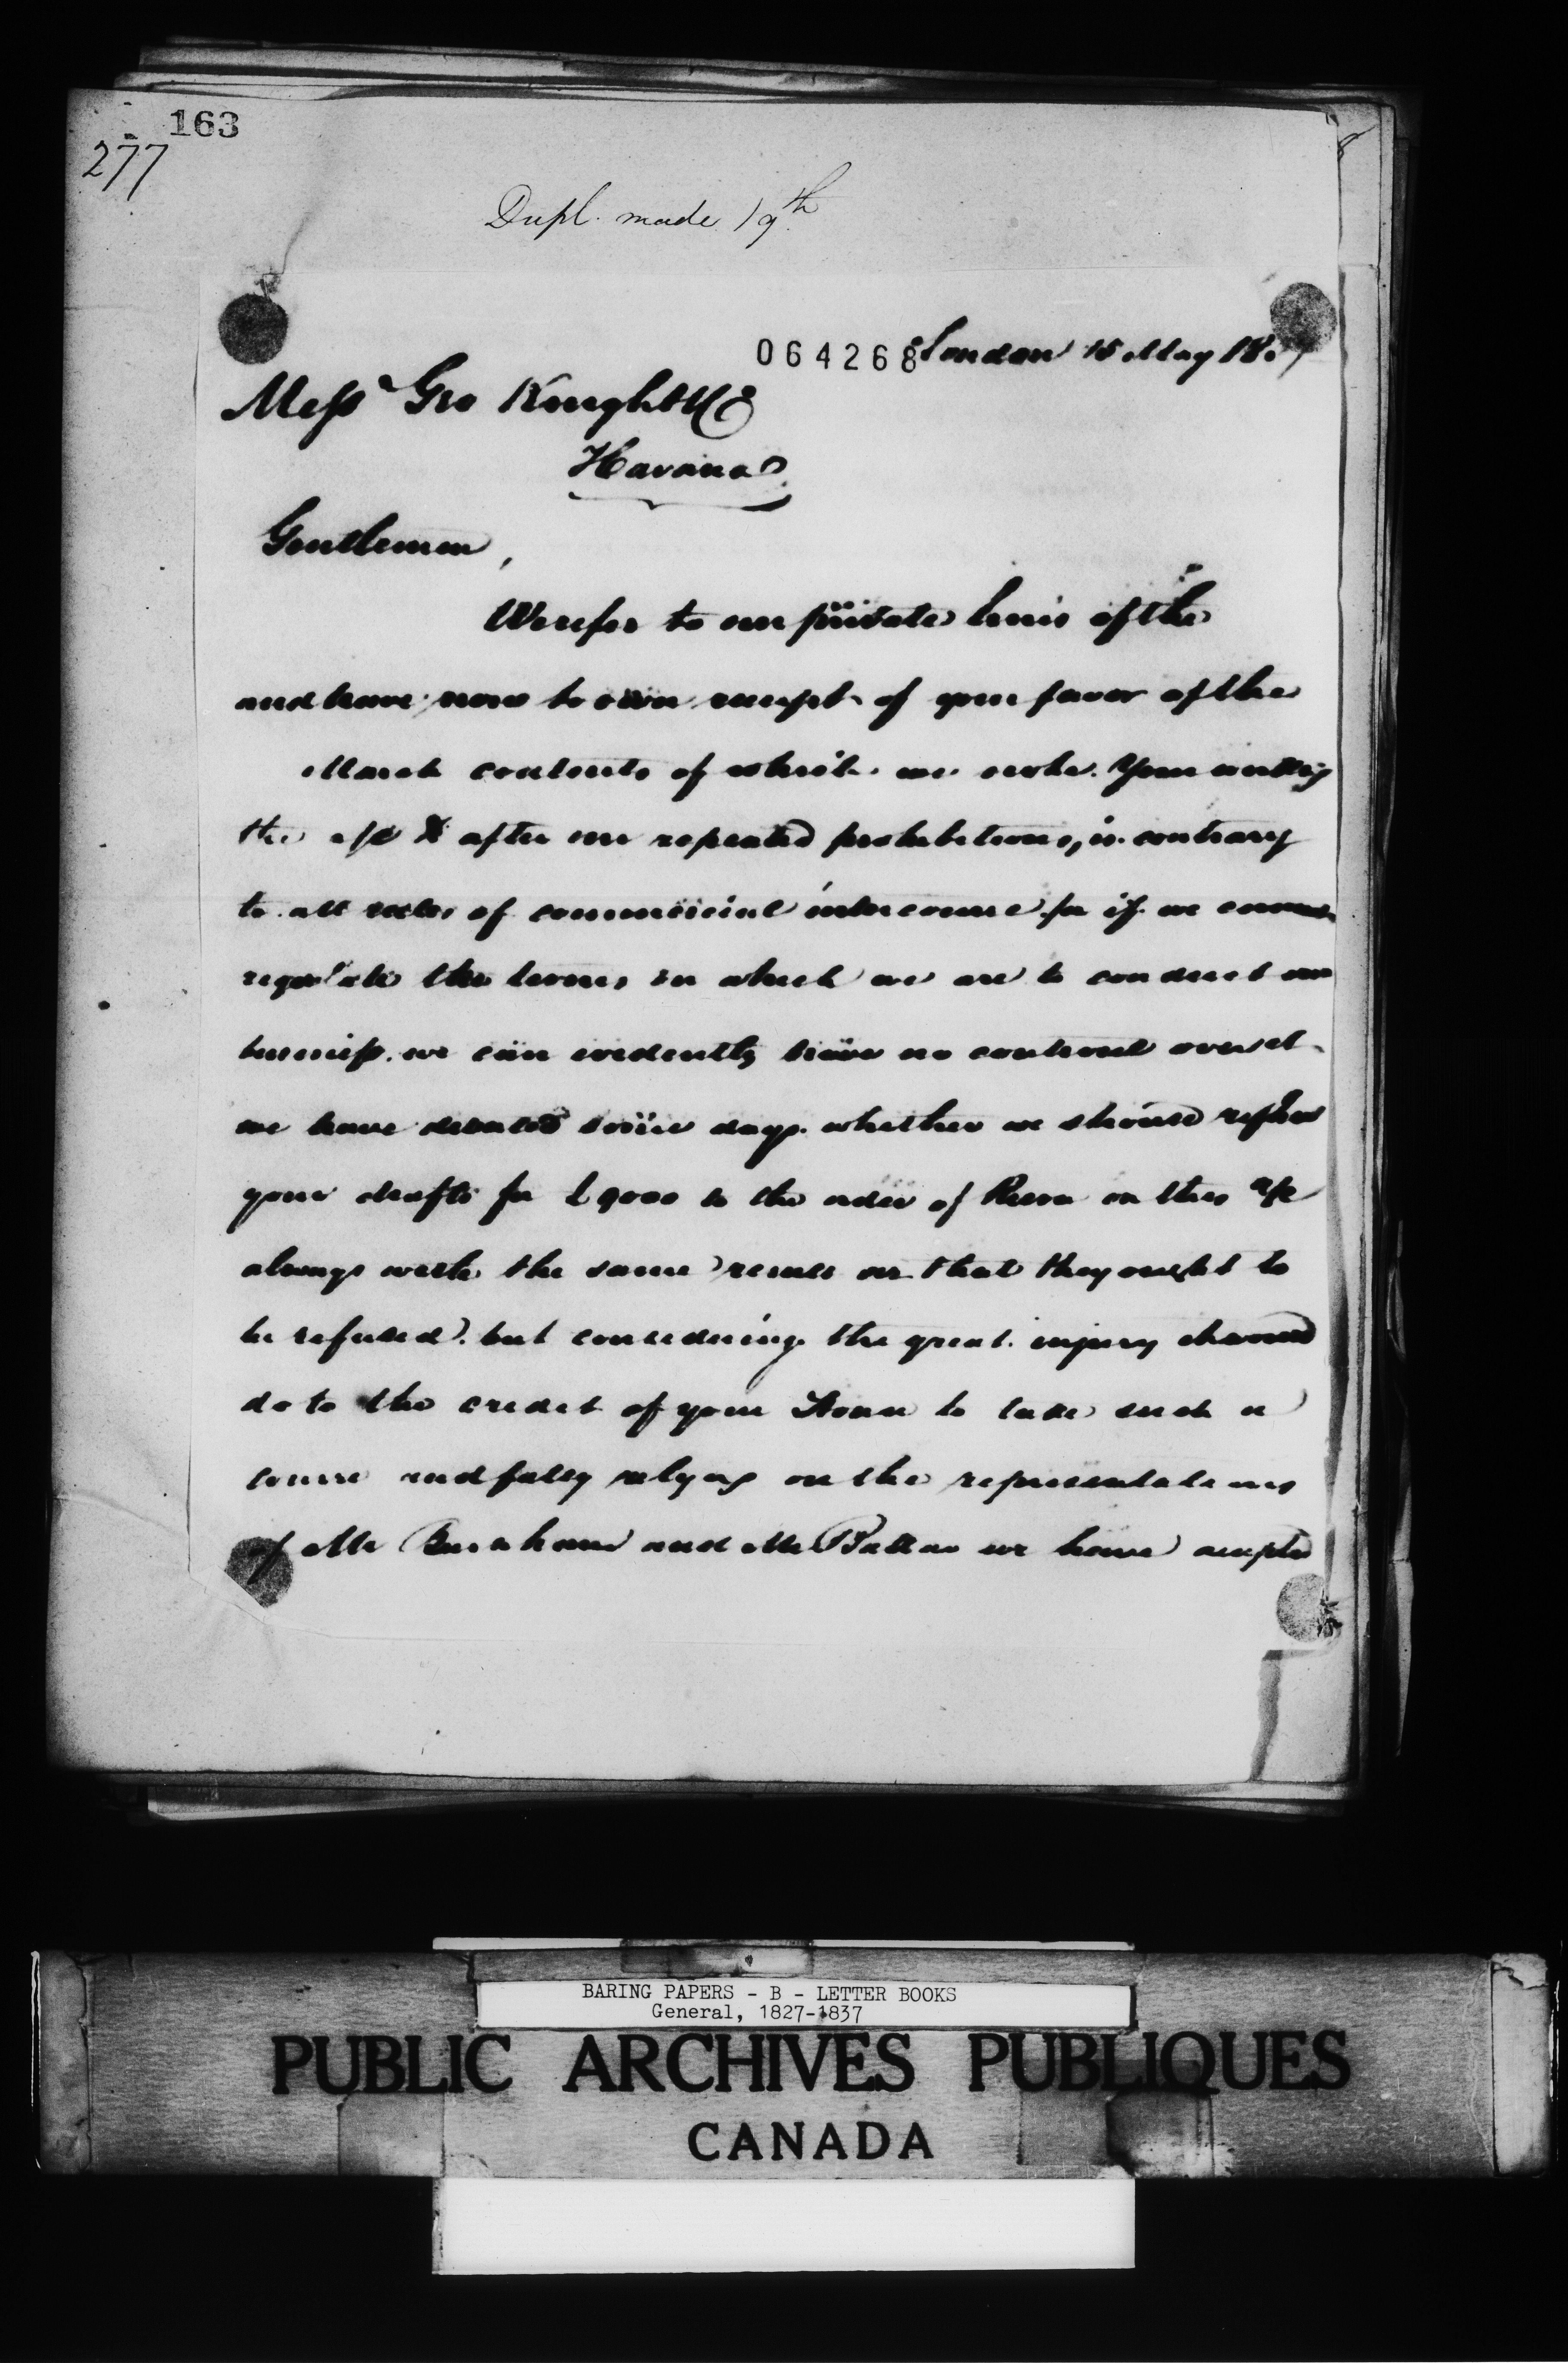 163
277
Dupl. made 19th
064268 London 15 May 18
Messrs Geo Knight & Co
Havana
Gentlemen,
We refer to our private lines of the
and have now to own receipt of your favor of the
March contents of which we note. Your
the a/c X after our repeated prohibitions, is contrary
to all rules of commercial intercourse for if we cannot
regulate the terms on which we are to conduct our
business. we can evidently have no controul over it.
we have debated some days whether we should refuse
your drafts for £9000 to the order of on this a/c
always with the same result or that they ought to
be refused. but considering the great injury
do to the credit of your House to take such a
course and fully relying on the representations
of Mr Burnham and Mr we have accepted
BARING PAPERS - B - LETTER BOOKS
General, 1827-1837
PUBLIC ARCHIVES PUBLIQUES
CANADA